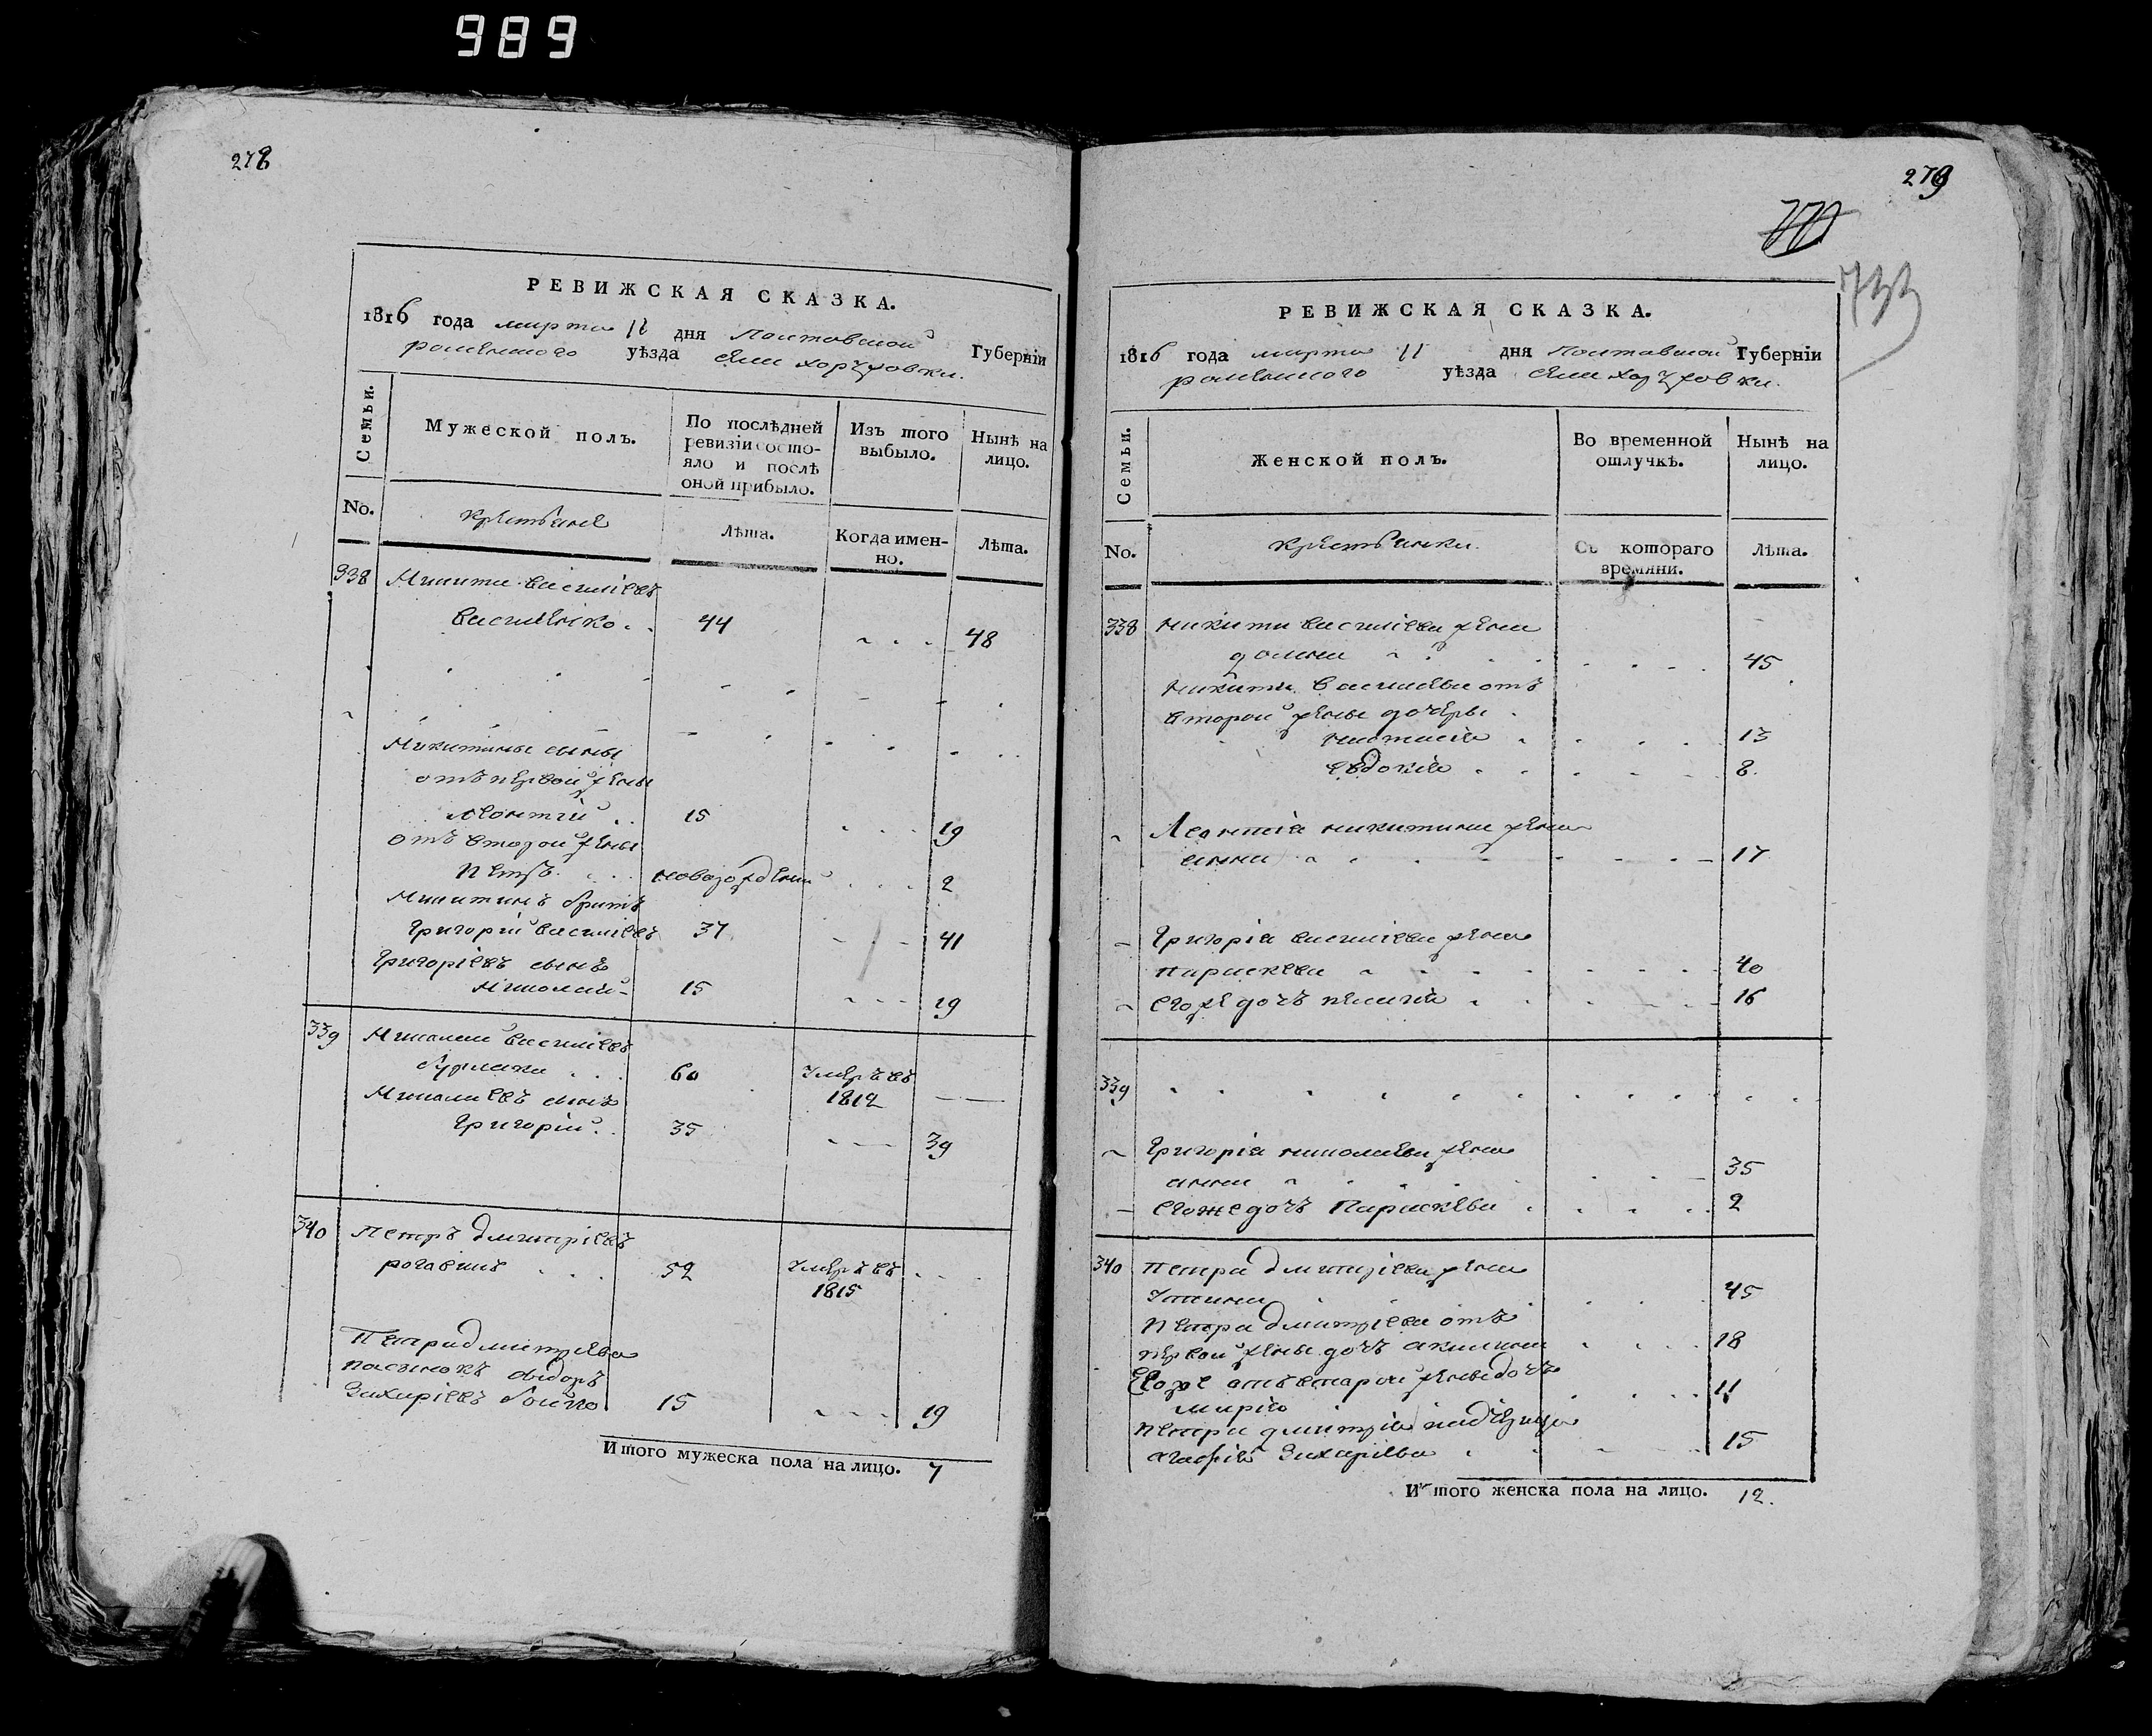 989
278
РЕВИЖСКАЯ СКАЗКА.
1816 года марта 11 дня Полтавской Губернїи
роменского уѣзда села хоружовки.
Семьи.
Мужеской полъ.
По послѣдней ревизїи состо-
яло и послѣ
оной прибыло.
Изъ того выбыло.
Нынѣ на лицо.
No.
крестьяне
Лѣта.
Когда имен-
но.
Лѣта.
338 Никита василіевъ
василенко 44 48
Никитины сыны
отъ первой жены
леонтій 15 19
отъ второй жены
петръ новорожденн 2
Никитинъ братъ
григорій василіевъ 37 41
григоріевъ сынъ
Николай 15 19
339 Николай василіевъ
60 умеръ въ
1812
Николаевъ сынъ
григорій 35 39
340 Петръ дмитріевъ
52 умеръ въ
1815
Петра дмитріева
пасынокъ
захаріевъ бойко 15 19
Итого мужеска пола на лицо. 7
279
РЕВИЖСКАЯ СКАЗКА.
1816 года марта 11 дня полтавской Губернїи
роменского уѣзда села хоружовки.
Семьи.
Женской полъ.
Во временной отлучкѣ.
Нынѣ на лицо.
No.
крестьянки.
Съ котораго времяни.
Лѣта.
338 никиты василіева жена
домна 45
никиты василіева отъ
второй жены дочери
настасіа 13
евдокіа 8.
Леонтіа никитина жена
анна 17
григоріа василіева жена
параскева 40
егожъ дочъ пелагіа 16
339
григоріа николаева жена
анна 35
егоже дочъ Параскева 2
340 петра дмитріева жена
устина 45
петра дмитріева отъ
первой жены дочъ акилина 18
Егоже отъ второй жены дочъ
маріа 11
петра дмитріа падчерица
агафіа захаріева 15
Итого женска пола на лицо. 12.